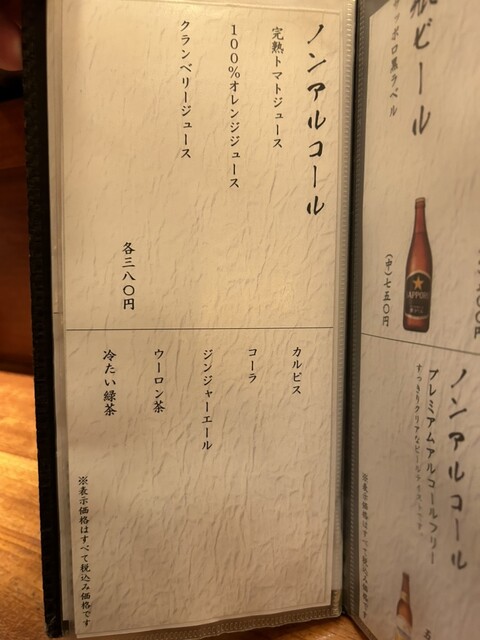 瓶ビール
サッポロ黒ラベル
(中)七五〇円
SAPPORO
ノンアルコール
プレミアムアルコールフリー
すっきりクリアなビールテイストです。
※表示価格はすべて税込み価格です
ノンアルコール
完熟トマトジュース
100%オレンジジュース
クランベリージュース
各三八〇円
カルピス
コーラ
ジンジャーエール
ウーロン茶
冷たい緑茶
※表示価格はすべて税込み価格です